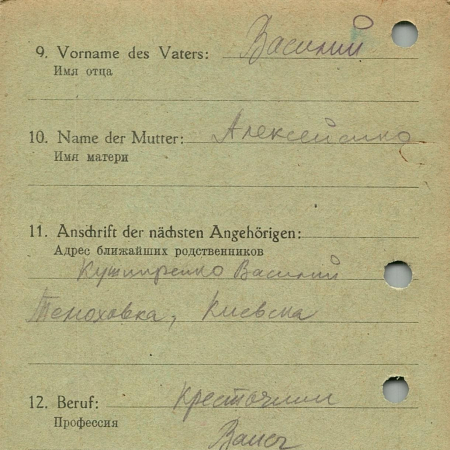 9. Vorname des Vaters: Василий
Имя отца
10. Name der Mutter: Алексеенко
Имя матери
11. Anschrift der nächsten Angehörigen:
Адрес ближайших родственников
Василий
Киевска
12. Beruf:
Профессия